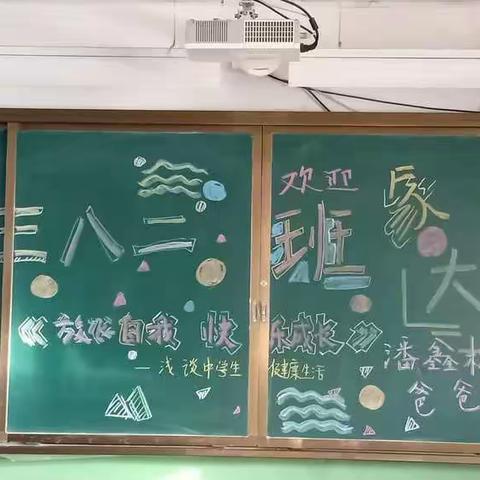 欢迎
八二班 家
大
《放松自我 快乐成长》
潘鑫
—浅谈中学生 健康生活
爸爸